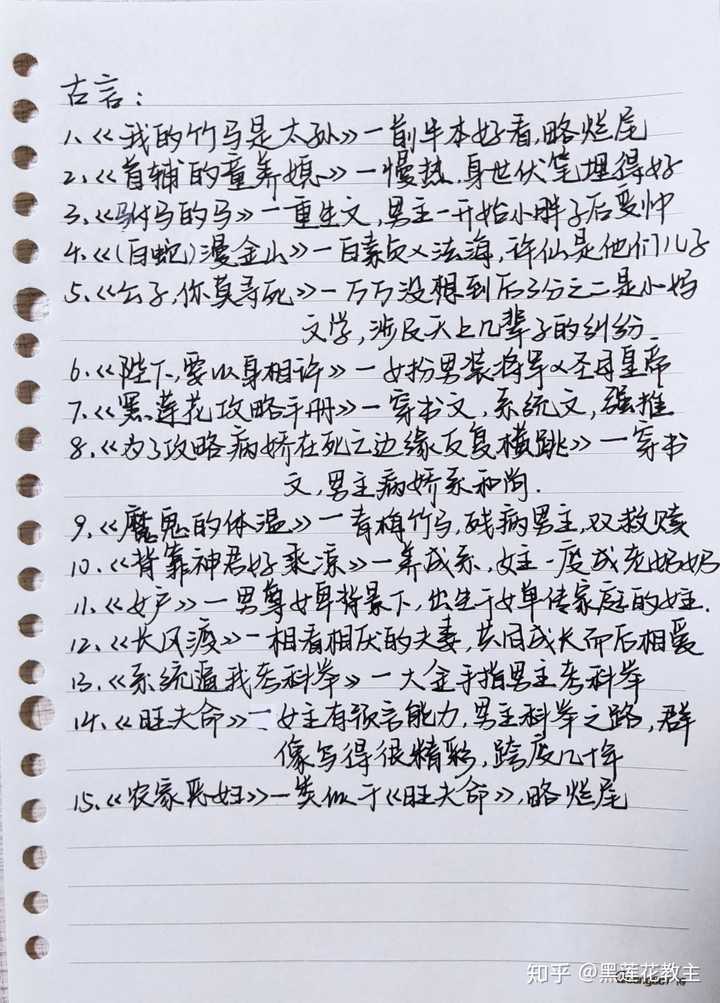 古言:
1、《我的竹马是太孙》一前半本好看,略烂尾
2、《首辅的童养媳》一慢热,身世伏笔埋得好
3、《驸马的马》一重生文,男主一开始小胖子后变帅
4、《(白蛇)漫金山》一白素贞×法海,许仙是他们儿子
5、《公子,你真寻死》一万万没想到后3分之二是小妈
文学,涉及天上几辈子的纠纷
6、《陛下,要以身相许》一女扮男装将军×圣母皇帝
7、《黑莲花攻略手册》一穿书文,系统文,强推
8、《为了攻略病娇在死亡边缘反复横跳》一穿书
文,男主病娇系和尚.
9、《魔鬼的体温》一青梅竹马,残病男主,双救赎
10、《背靠神君好乘凉》一养成系,女主一度成老妈妈
11、《女户》一男尊女卑背景下,出生于女单传家庭的女主.
12、《长风渡》一相看相厌的夫妻,共同成长而后相爱
13、《系统逼我考科举》一大金手指男主考科举
14、《旺夫命》一女主有预言能力,男主科举之路,群
像写得很精彩,跨度几十年
15、《农家恶妇》一类似于《旺夫命》,略烂尾
知乎 @黑莲花教主